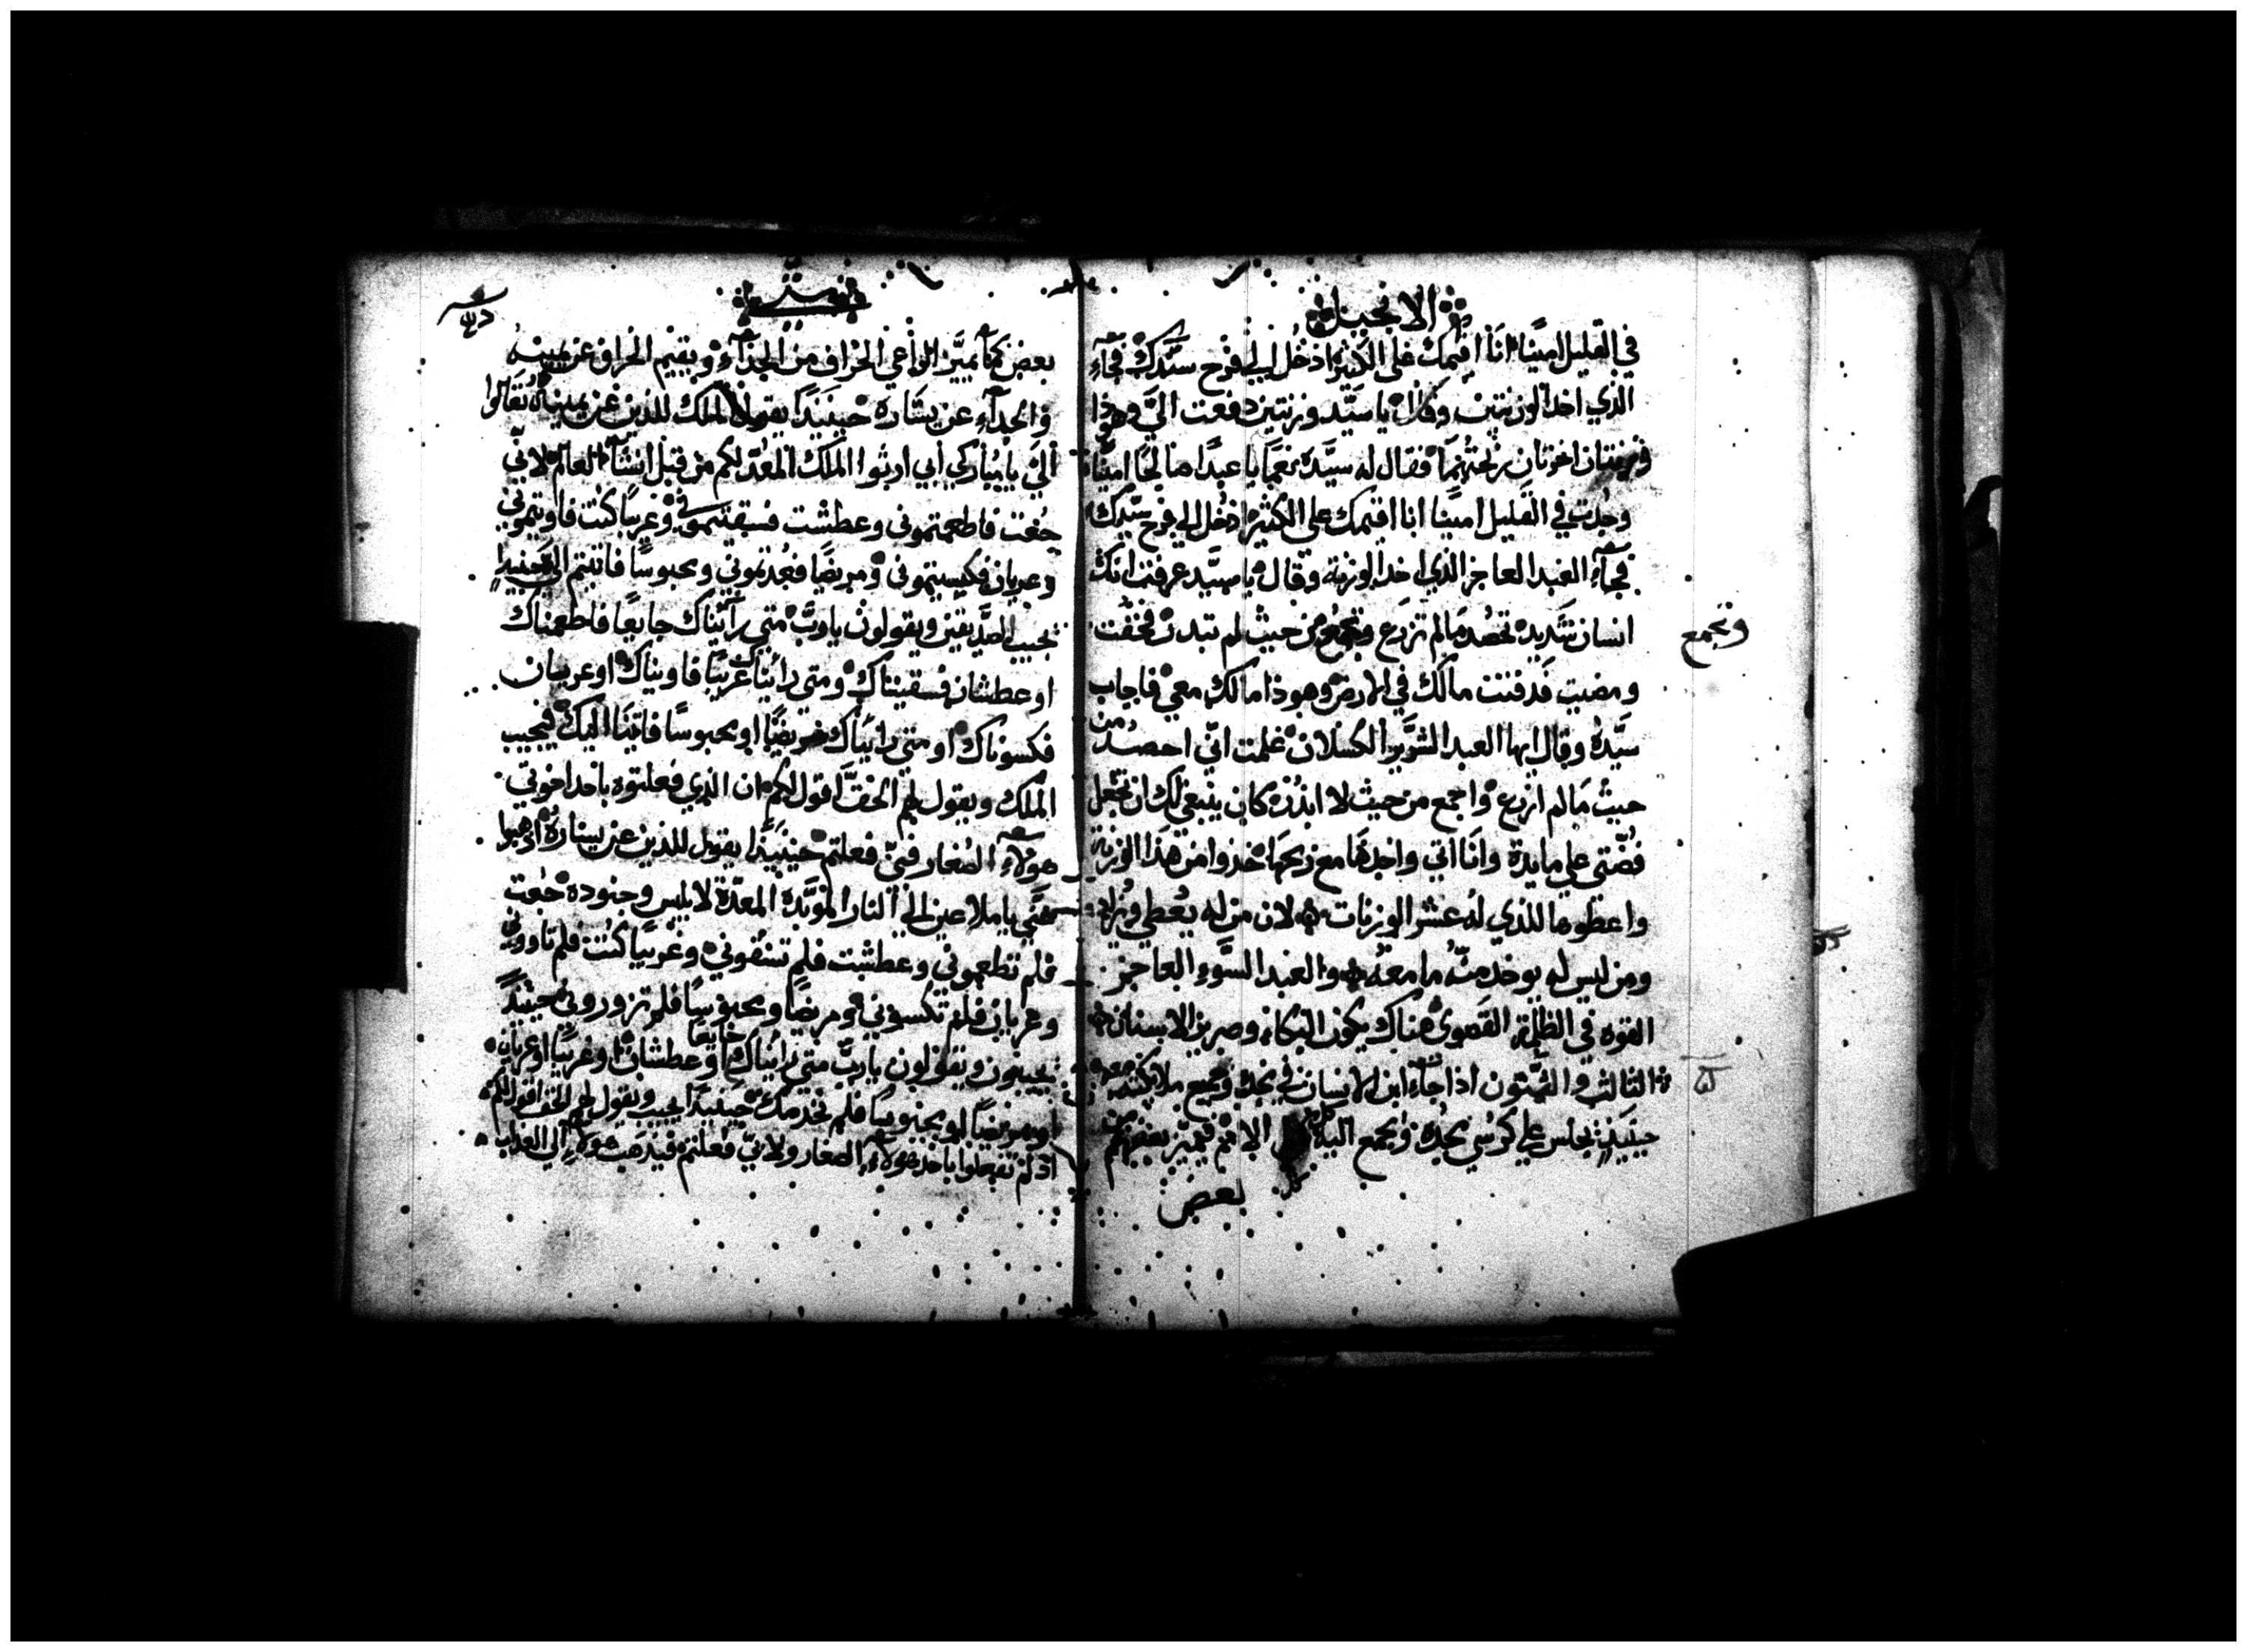 الانجيل
في القليل امينًا انا اقيمك على الكثير ادخل الى فرح سيّدك فجآء
الذي اخذ الوزنتين وقال يا سيّد وزنتين دفعت اليّ وهوذا
وزنتان اخرتان ربحتهما فقال له سيّده نعمّا يا عبدًا صالحًا امينًا
وجدت في القليل امينًا انا اقيمك على الكثير ادخل الى فرح سيّدك
فجآء العبد العاجز الذي اخد الوزنة وقال يا سيّد عرفت انك
انسان شديد تحصد مالم تزرع وتجمع من حيث لم تبدر فخفت
وتجمع
ومضيت فدفنت مالك في الارض وهوذا مالك معي فاجاب
سيّده وقال ايها العبد الشرير الكسلان علمت انّي احصد من
حيث مالم ازرع واجمع من حيث لا ابذر كان ينبغي لك ان تجعل
فضّتي على مايدة وانا اتي واخدها مع ربحها خذوا من هذا الوزنة
واعطوها للذي له عشر الوزنات لان من له يعطى ويزاد
ومن ليس له يوخد منه ما معه والعبد السّوء العاجز
القوه في الظلمة القصوى هناك يكون البكاء وصرير الاسنان
الثالث والستون اذا جآء ابن الانسان في مجده وجميع ملايكته معه
حينيذٍ يجلس على كرسي مجده ويجمع اليه كل الامم فيميز بعضهم من
بعض
متى
بعض كما يميّز الراعي الخراف من الجدآء ويقيم الخراف عن يمينه
والجدآء عن يساره حينيدًا يقول الملك للذين عن يمينه تعالوا
اليّ يا مباركي ابي ارثوا الملك المعدّ لكم من قبل انشآء العالم لاني
جعت فاطعمتموني وعطشت فسقيتموني وغريبًا كنت فاويتموني
وعريان فكسيتموني ومريضًا فعدتموني ومحبوسًا فاتيتم الي حينيدٍ
تجيب الصدّيقين ويقولون يا ربّ متى رآيناك جايعًا فاطعمناك
او عطشان فسقيناك ومتى رايناك غريبًا فاويناك او عريان
فكسوناك او متى رايناك مريضًا او محبوسًا فاتينا اليك فيجيب
الملك ويقول لهم الحقّ اقول لكم ان الذي فعلتوه باحد اخوتي
هولاء الصغار فبي فعلتم حينيذًا يقول للذين عن يساره اذهبوا
عنّي يا ملاعين الى النار الموبّدة المعدّة لابليس وجنوده جعت
فلم تطعموني وعطشت فلم تسقوني وغريبًا كنت فلم تاووني
وعريان فلم تكسوني ومريضًا ومحبوسًا فلم تزوروني حينيدًا
يجيبون ويقولون يا ربّ متى رايناك جايعًا او عطشان او غريبًا او عريان
او مريضًا او محبوسًا فلم نخدمك حينيدًا يجيب ويقول لهم الحق اقول لكم
اذ لم تفعلوا باحد هولاء الصغار ولا بيّ فعلتم فيذهب هولاء الى العذاب